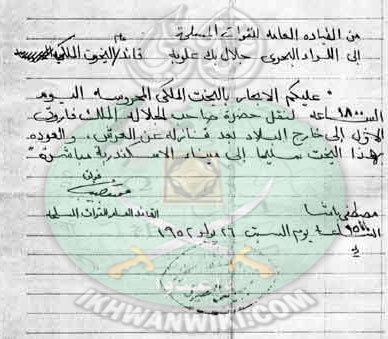 من القيادة العامة للقوات المسلحة
إلى اللواء البحرى جلال بك علوبة قائد عام اليخوت الملكية
" عليكم الابحار باليخت الملكى المحروسة اليوم
الساعة ١٨٠٠ لنقل حضرة صاحب الجلالة الملك فاروق
الأول إلى خارج البلاد بعد تنازله عن العرش والعودة
بهذا اليخت سليما إلى ميناء الاسكندرية مباشرة "
مصطفى باشا
القائد العام للقوات المسلحة
الساعة يوم السبت ٢٦ يوليو ١٩٥٢
IKHWANWIKI.COM